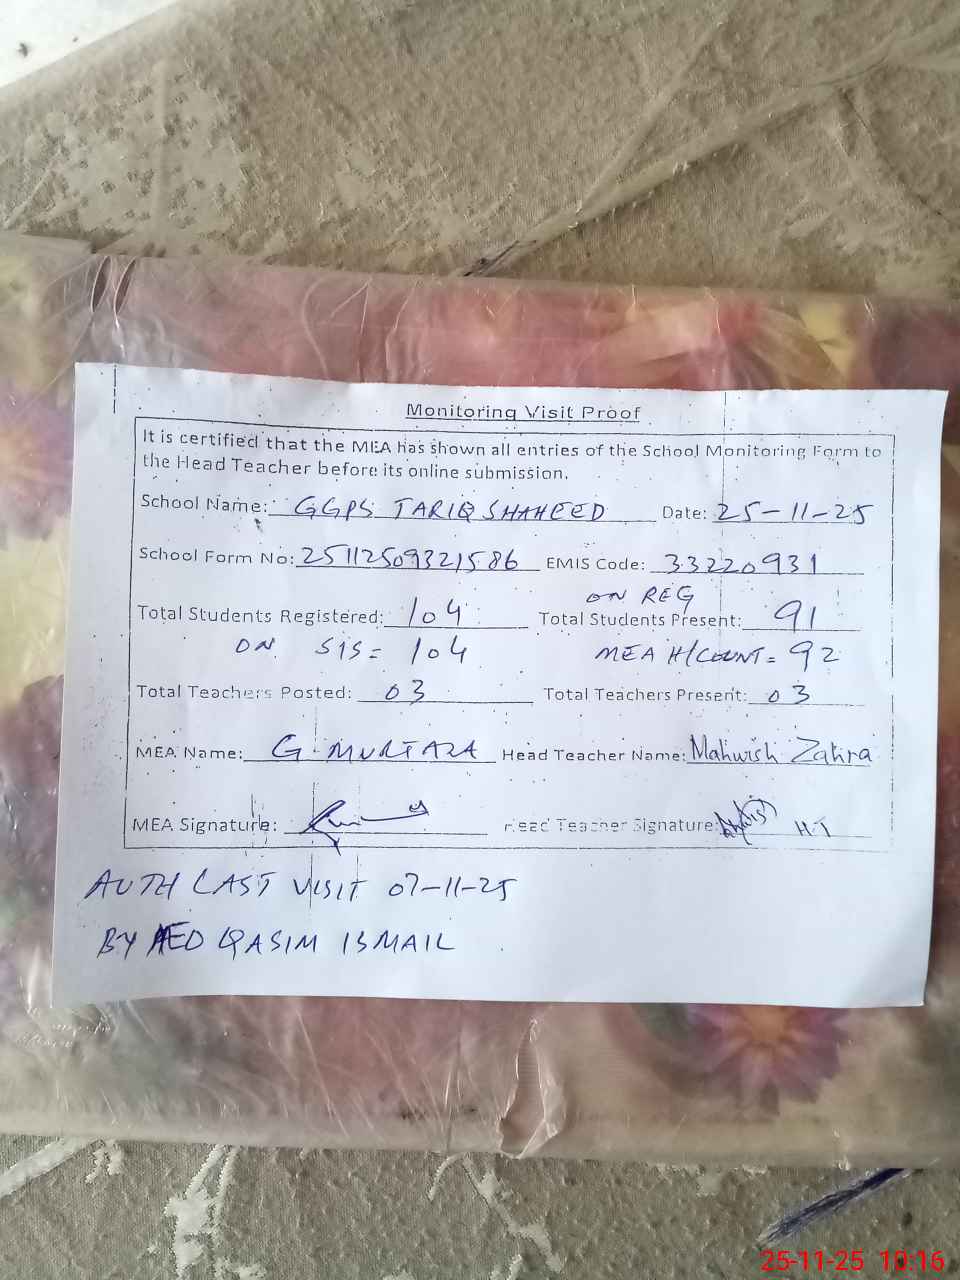 Monitoring Visit Proof
It is certified that the MEA has shown all entries of the School Monitoring Form to
the Head Teacher before its online submission.
School Name: GGPS TARIQ SHAHEED Date: 25-11-25
School Form No: 25112509321586 EMIS Code: 33220931
ON REG
Total Students Registered: 104 Total Students Present: 91
ON SIS = 104 MEA H/COUNT = 92
Total Teachers Posted: 03 Total Teachers Present: 03
MEA Name: G. MURTAZA Head Teacher Name: Mahwish Zahra
MEA Signature: Head Teacher Signature: H.T
AUTH LAST VISIT 07-11-25
BY AEO QASIM ISMAIL
25-11-25 10:16